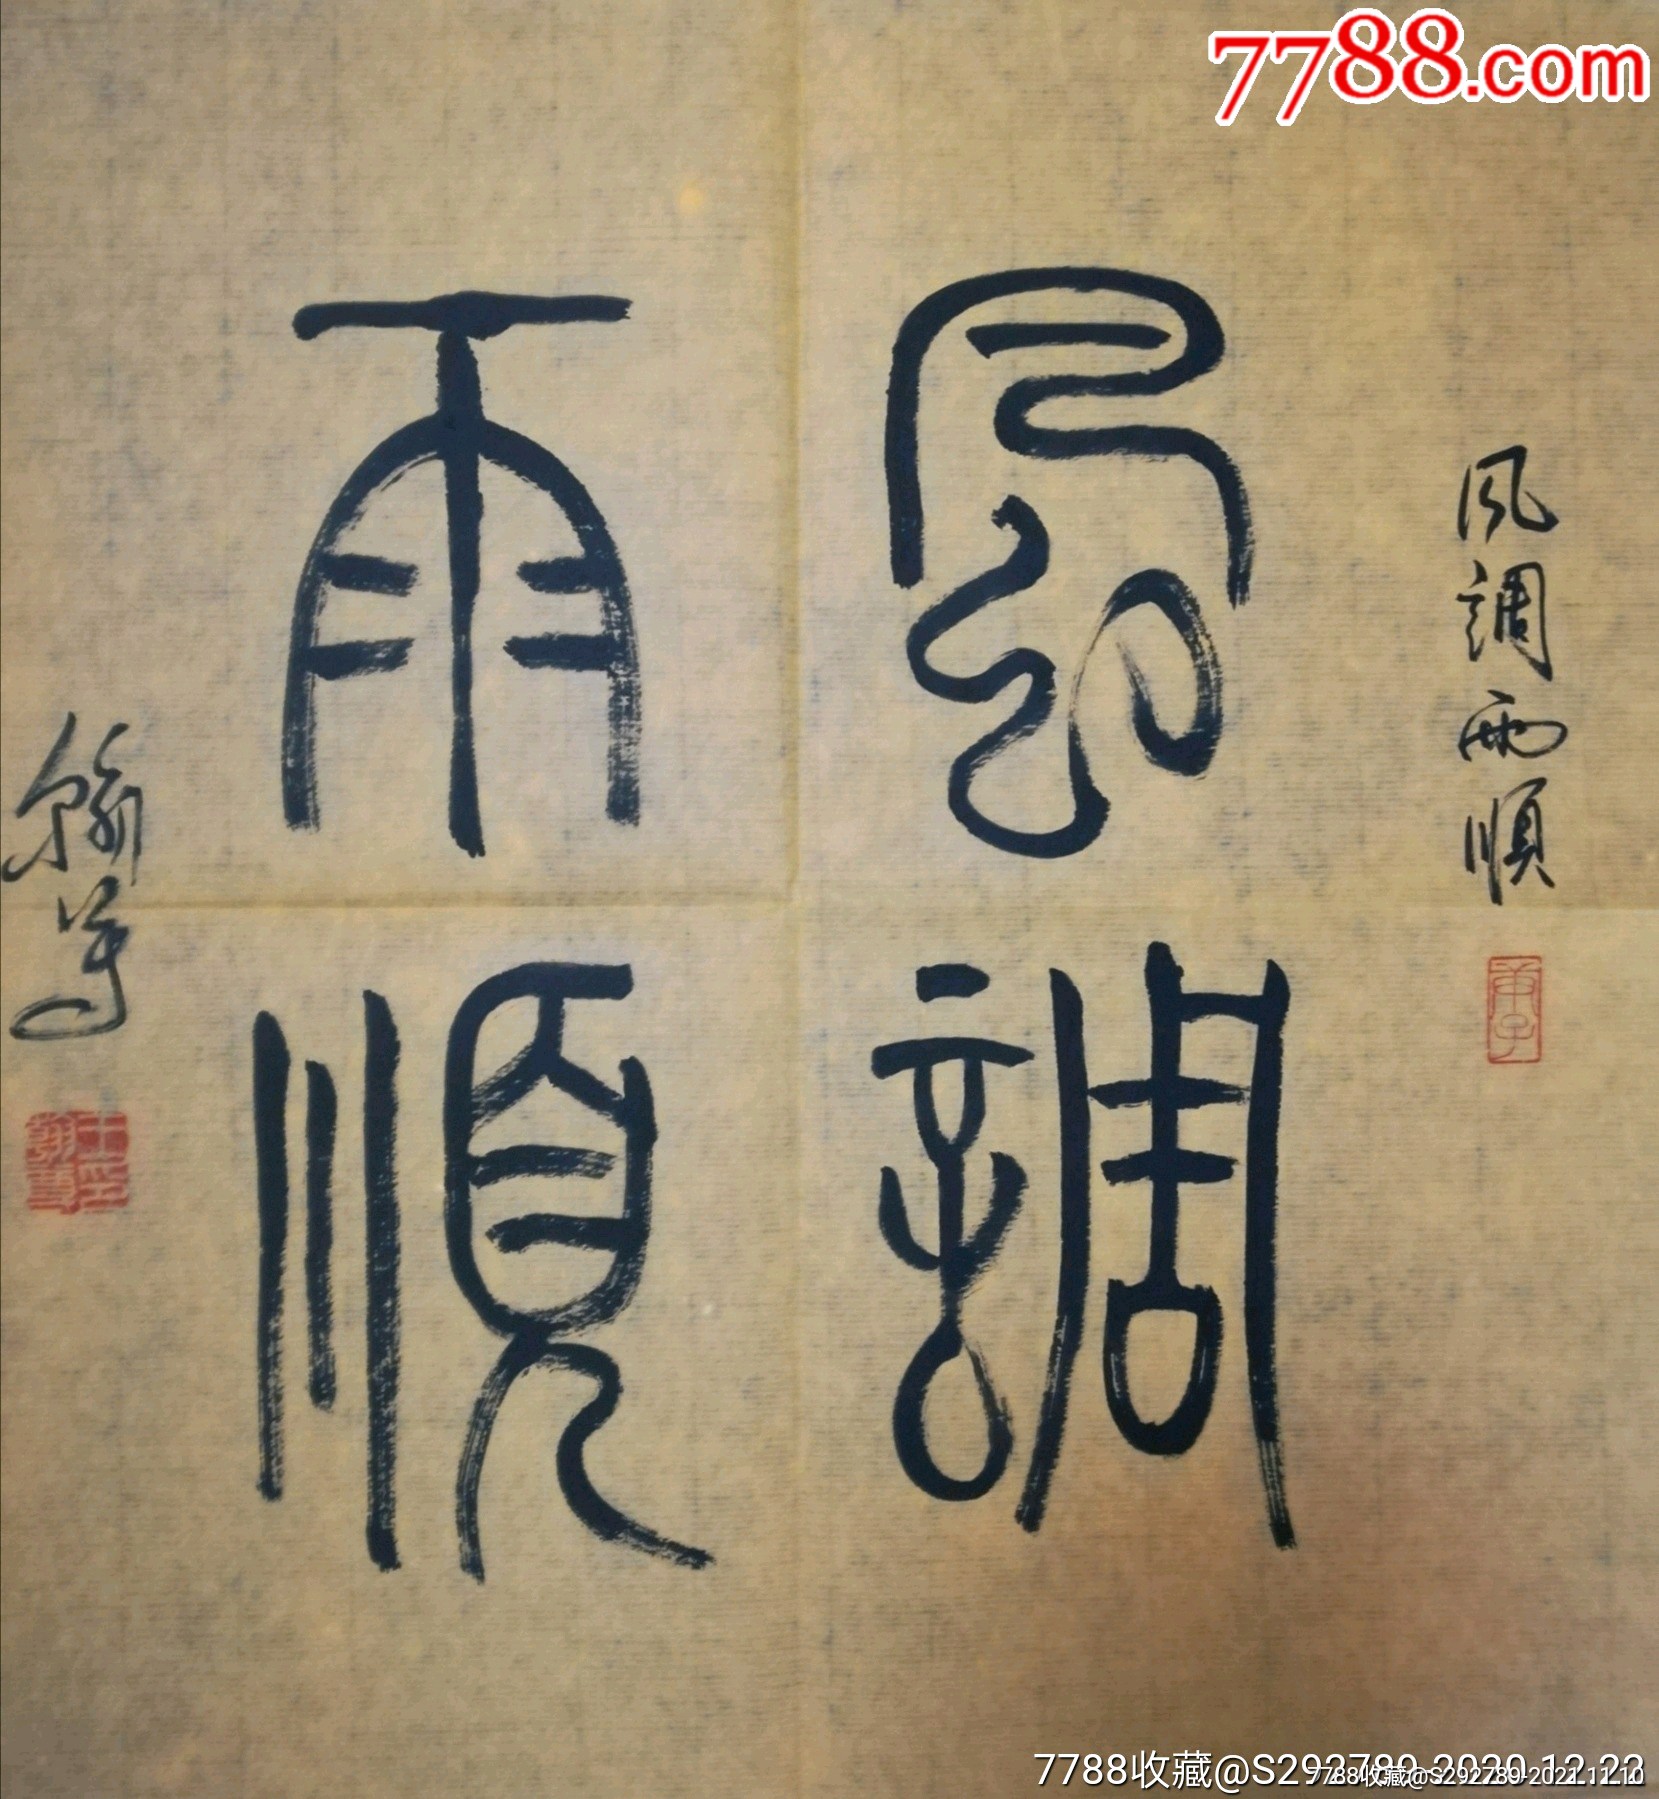 7788.com
風調
雨順
風調雨順
7788收藏@S292789-2020.12.22
7788收藏@S292789-2021.11.10